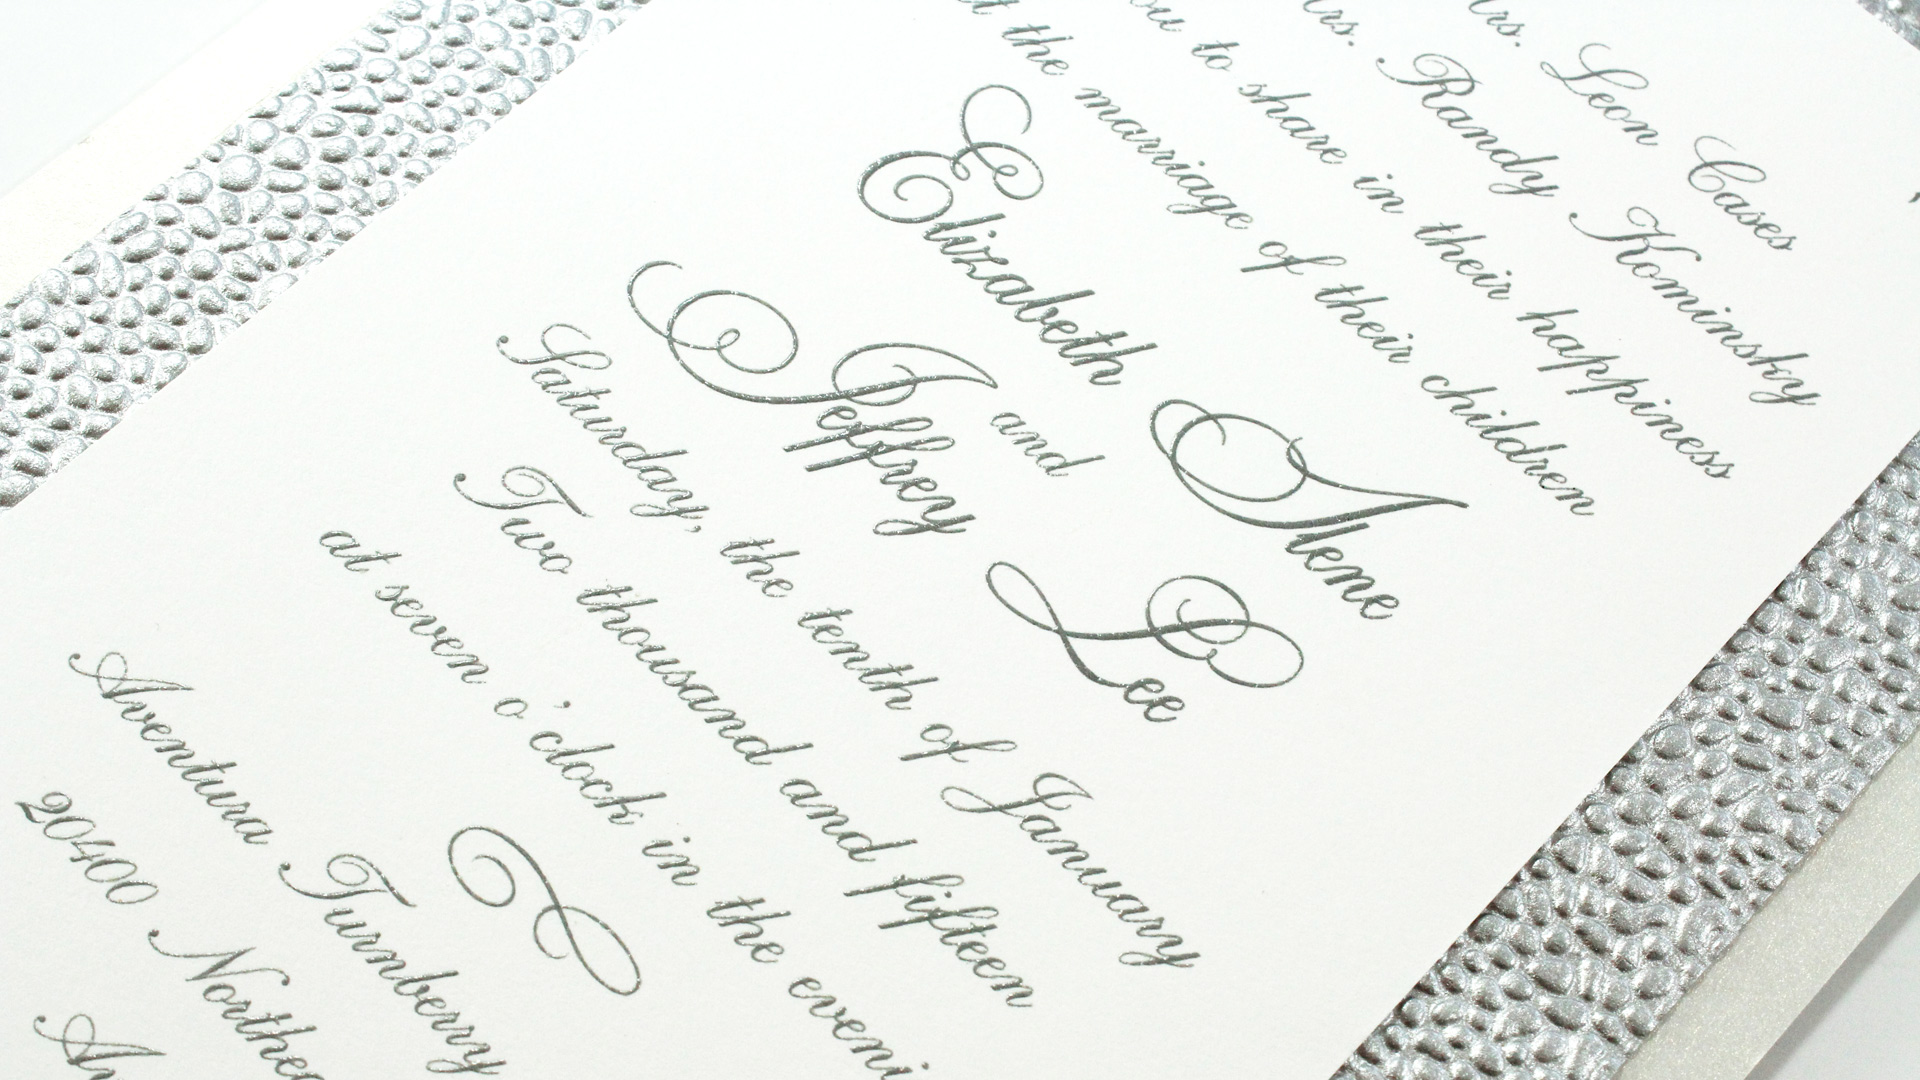 Leon Cases
Randy Kominsky
to share in their happiness
the marriage of their children
Elizabeth Alene
and
Jeffrey Lee
Saturday, the tenth of January
Two thousand and fifteen
at seven o'clock in the eveni
Aventura Turnberry
20400 Northea